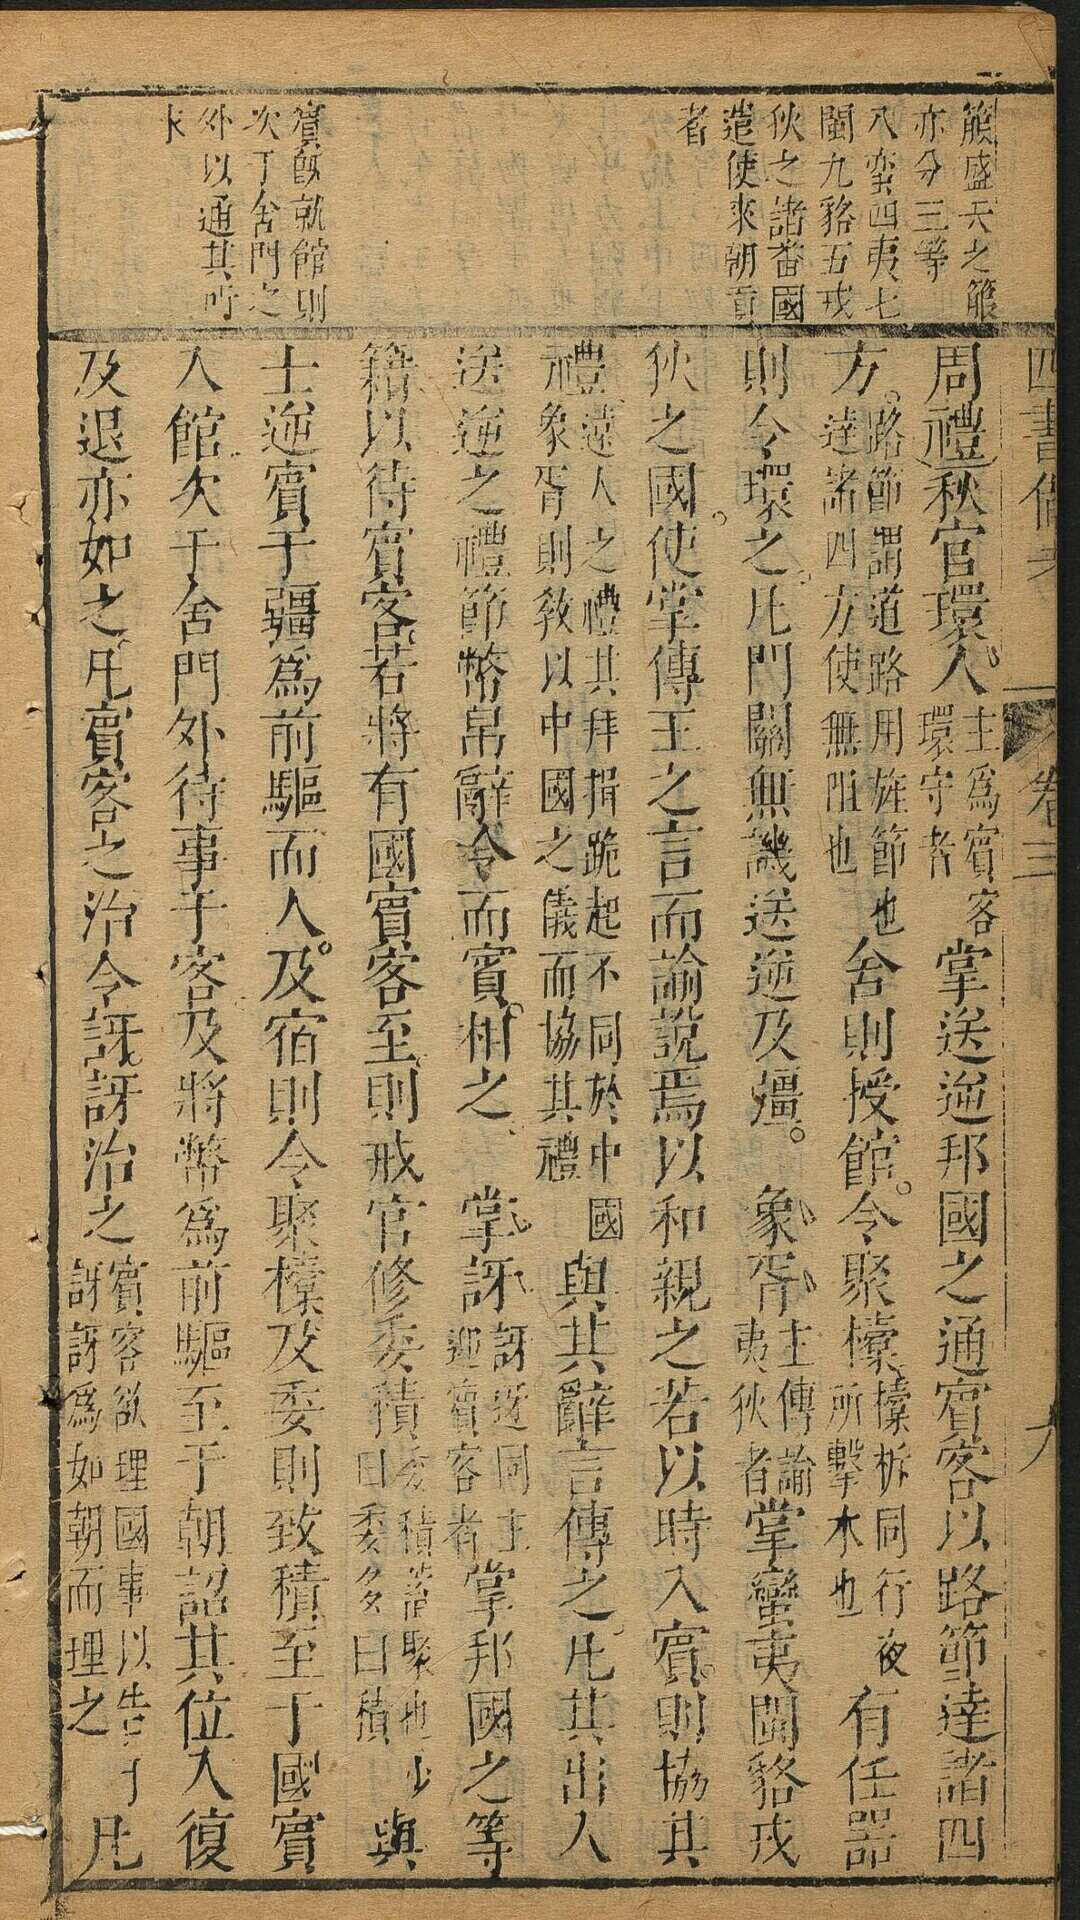 四書備 卷三 九
簱盛天之簱
亦分三等
八蠻四夷七
閩九貉五戎
狄之諸畨國
遣使來朝貢
者
賓旣就館則
次于舍門之
外以通其所
求
周禮秋官環人主爲賓客環守者掌送逆邦國之通賓客以路節達諸四
方路節謂道路用旌節也達諸四方使無阻也舍則授館令聚㯓㯓柝同行夜所擊木也有任器
則令環之凡門關無譏送逆及疆 象胥主傳諭夷狄者掌蠻夷閩貉戎
狄之國使掌傳王之言而諭說焉以和親之若以時入賓則協其
禮遠人之禮其拜揖跪起不同於中國象胥則敎以中國之儀而協其禮與其辭言傳之凡其出入
送逆之禮節幣帛辭令而賓相之 掌訝訝迓同主迎賓客者掌邦國之等
籍以待賓客若將有國賓客至則戒官修委積委積諸聚也少曰委多曰積與
士逆賓于疆爲前驅而入及宿則令聚㯓及委則致積至于國賓
入館次于舍門外待事于客及將幣爲前驅至于朝詔其位入復
及退亦如之凡賓客之治令訝訝治之賓客欲理國事以告于訝訝爲如朝而理之凡